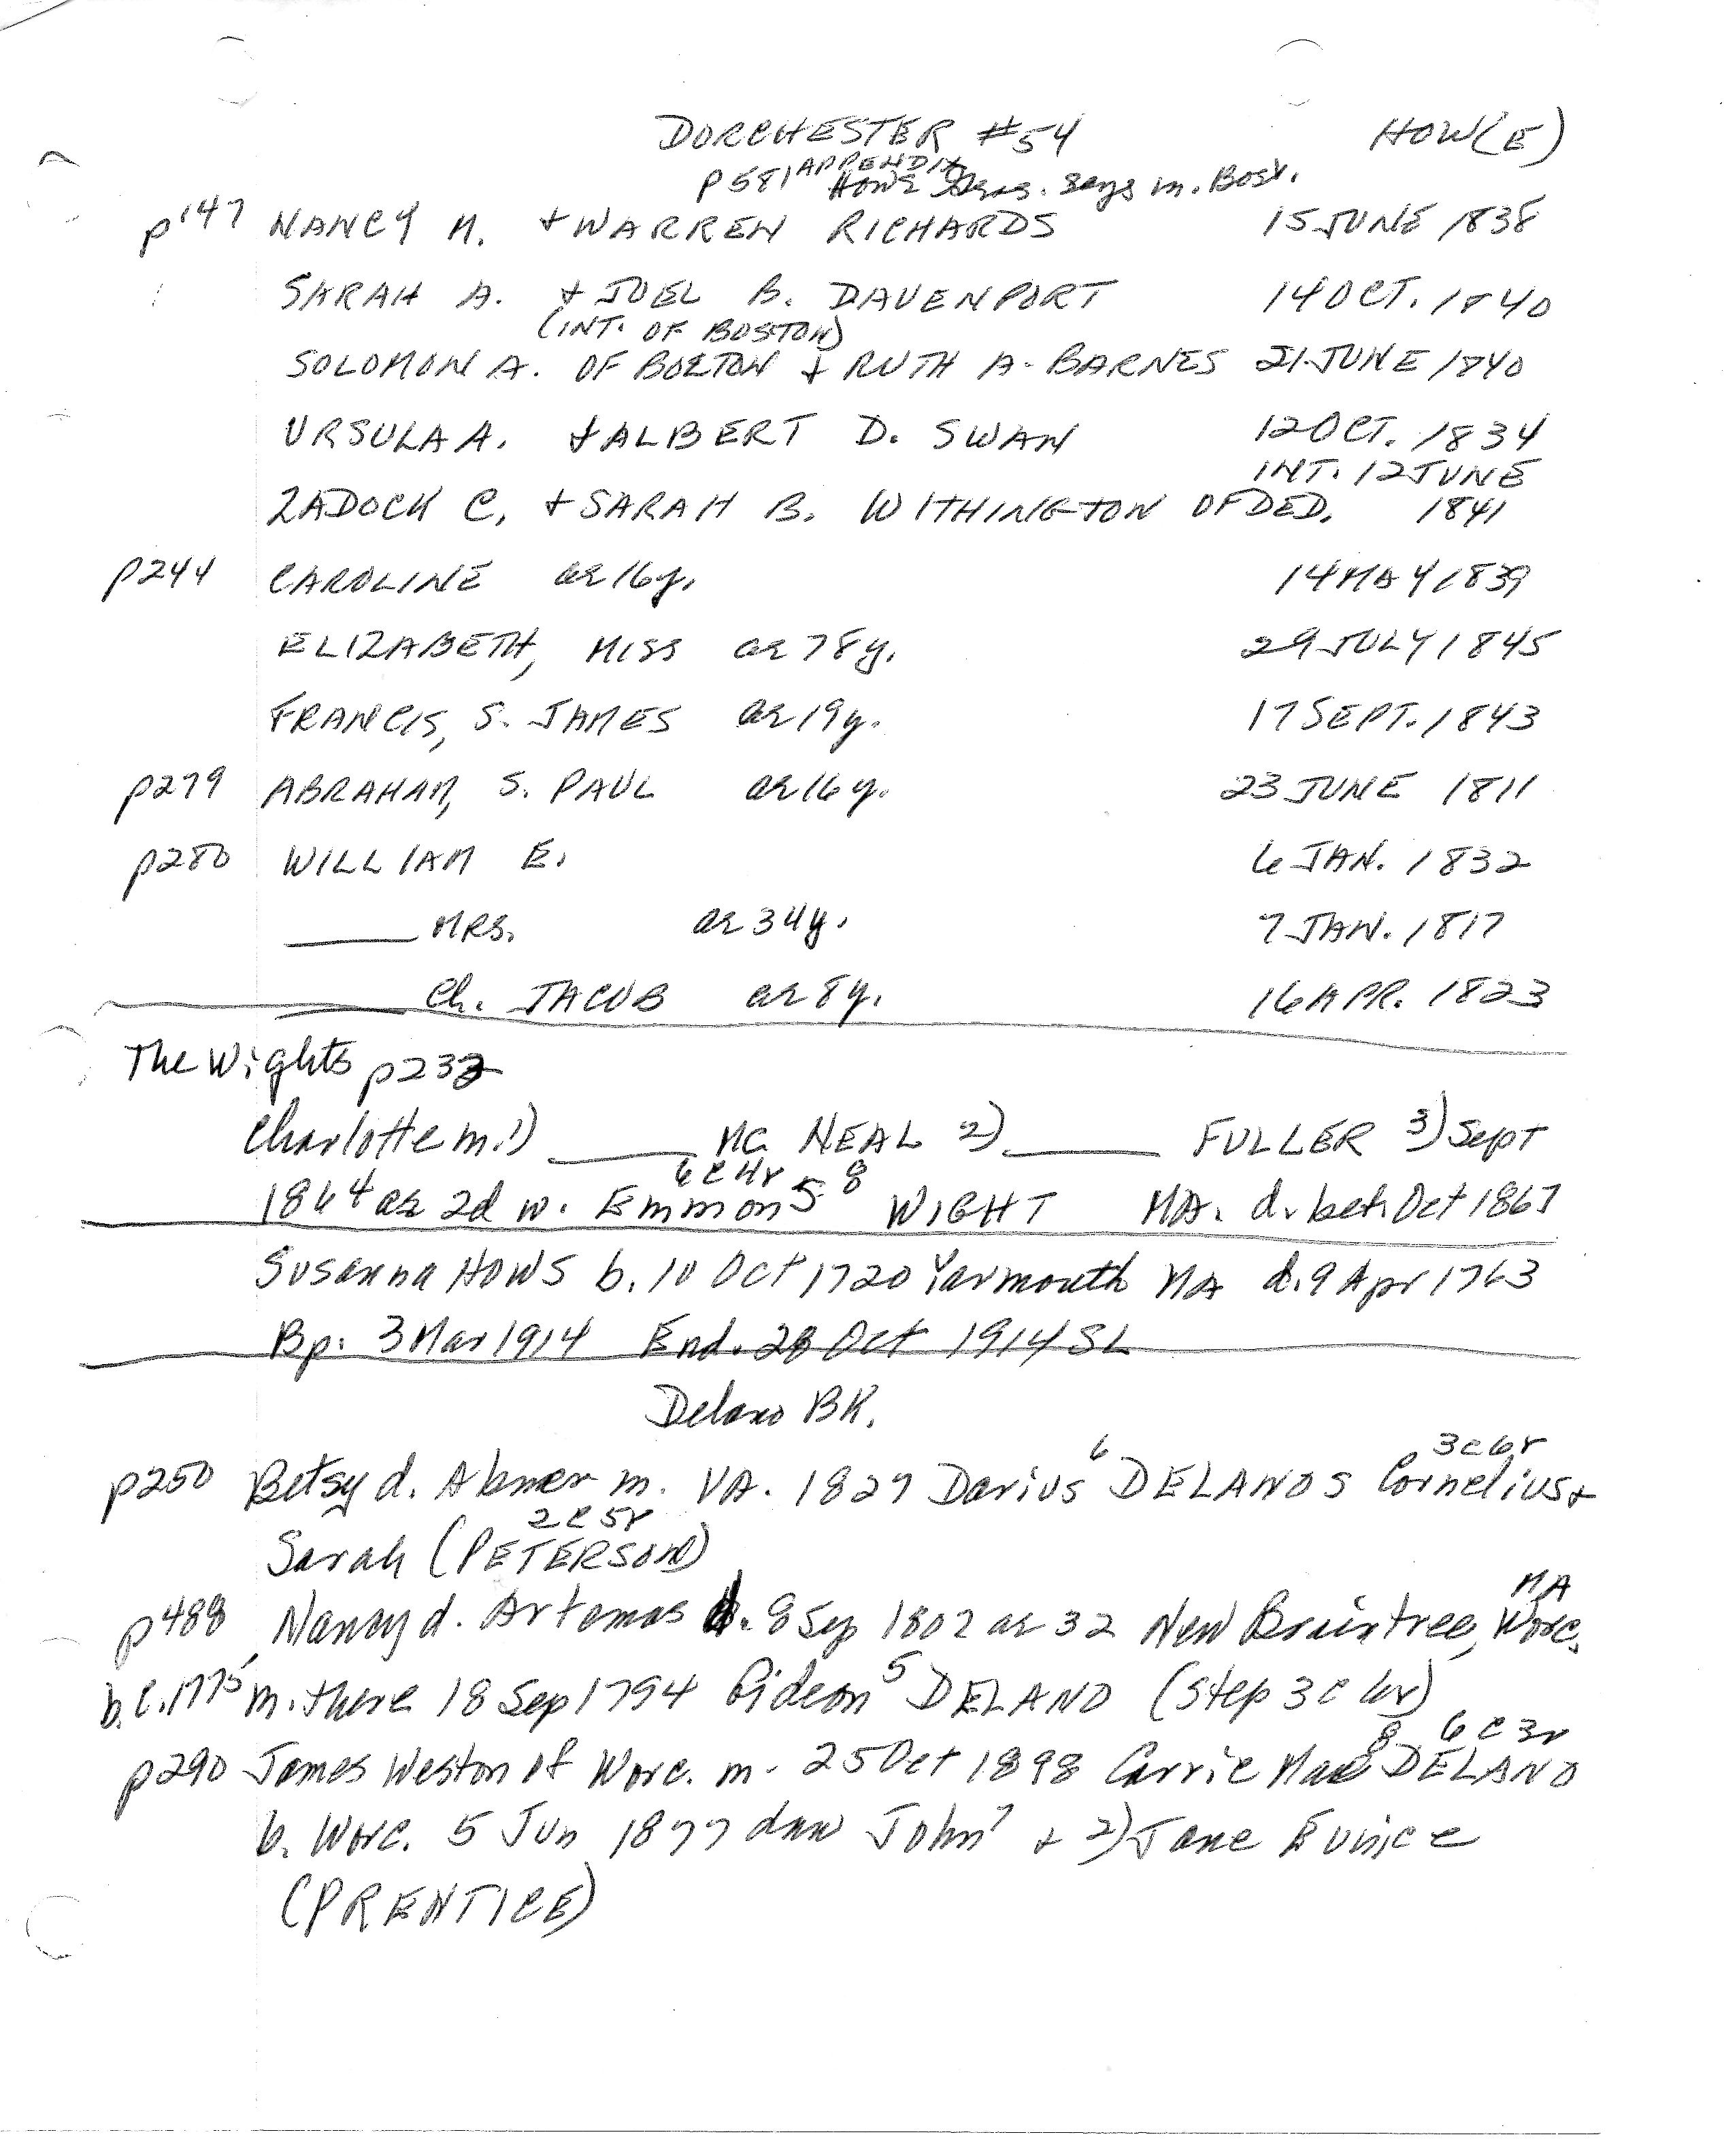 DORCHESTER #54 HOW(E)
p581 APPENDIX Howe Says m. Bost.
p147 NANCY M. + WARREN RICHARDS 15 JUNE 1838
SARAH A. + JOEL B. DAVENPORT 14 OCT. 1840
(INT. OF BOSTON)
SOLOMON A. OF BOLTON + RUTH A. BARNES 21 JUNE 1840
URSULA A. + ALBERT D. SWAN 12 OCT. 1834
INT. 12 JUNE
ZADOCK C. + SARAH B. WITHINGTON OF DED. 1841
p244 CAROLINE ae 16y. 14 MAY 1839
ELIZABETH, MISS ae 78y. 29 JULY 1845
FRANCIS, S. JAMES ae 19y. 17 SEPT. 1843
p279 ABRAHAM, S. PAUL ae 16y. 23 JUNE 1811
p280 WILLIAM E. 6 JAN. 1832
____ MRS. ae 34y. 7 JAN. 1817
____ Ch. JACOB ae 8y. 16 APR. 1823
The Wights p232
Charlotte m. 1) ____ MC NEAL 2) ____ FULLER 3) Sept
6C4r
1864 as 2d w. Emmons 8 WIGHT MA. d. bef. Oct 1867
Susanna HOWS b. 10 Oct 1720 Yarmouth MA d. 9 Apr 1763
Bp: 3 Mar 1914 End. 28 Oct 1914 SL
Delano BK.
3c6r
p250 Betsy d. Abner m. VA. 1827 Darius 6 DELANO S Cornelius +
2C5r
Sarah (PETERSON)
MA
p488 Nancy d. Artemas d. 8 Sep 1802 ae 32 New Braintree, Worc.
b.c.1775 m. there 18 Sep 1794 Gideon 5 DELANO (Step 3c 6r)
8 6C3r
p290 James Weston of Worc. m. 25 Oct 1898 Carrie Mae DELANO
b. Worc. 5 Jun 1877 dau John 7 + 2) Jane Eunice
(PRENTICE)